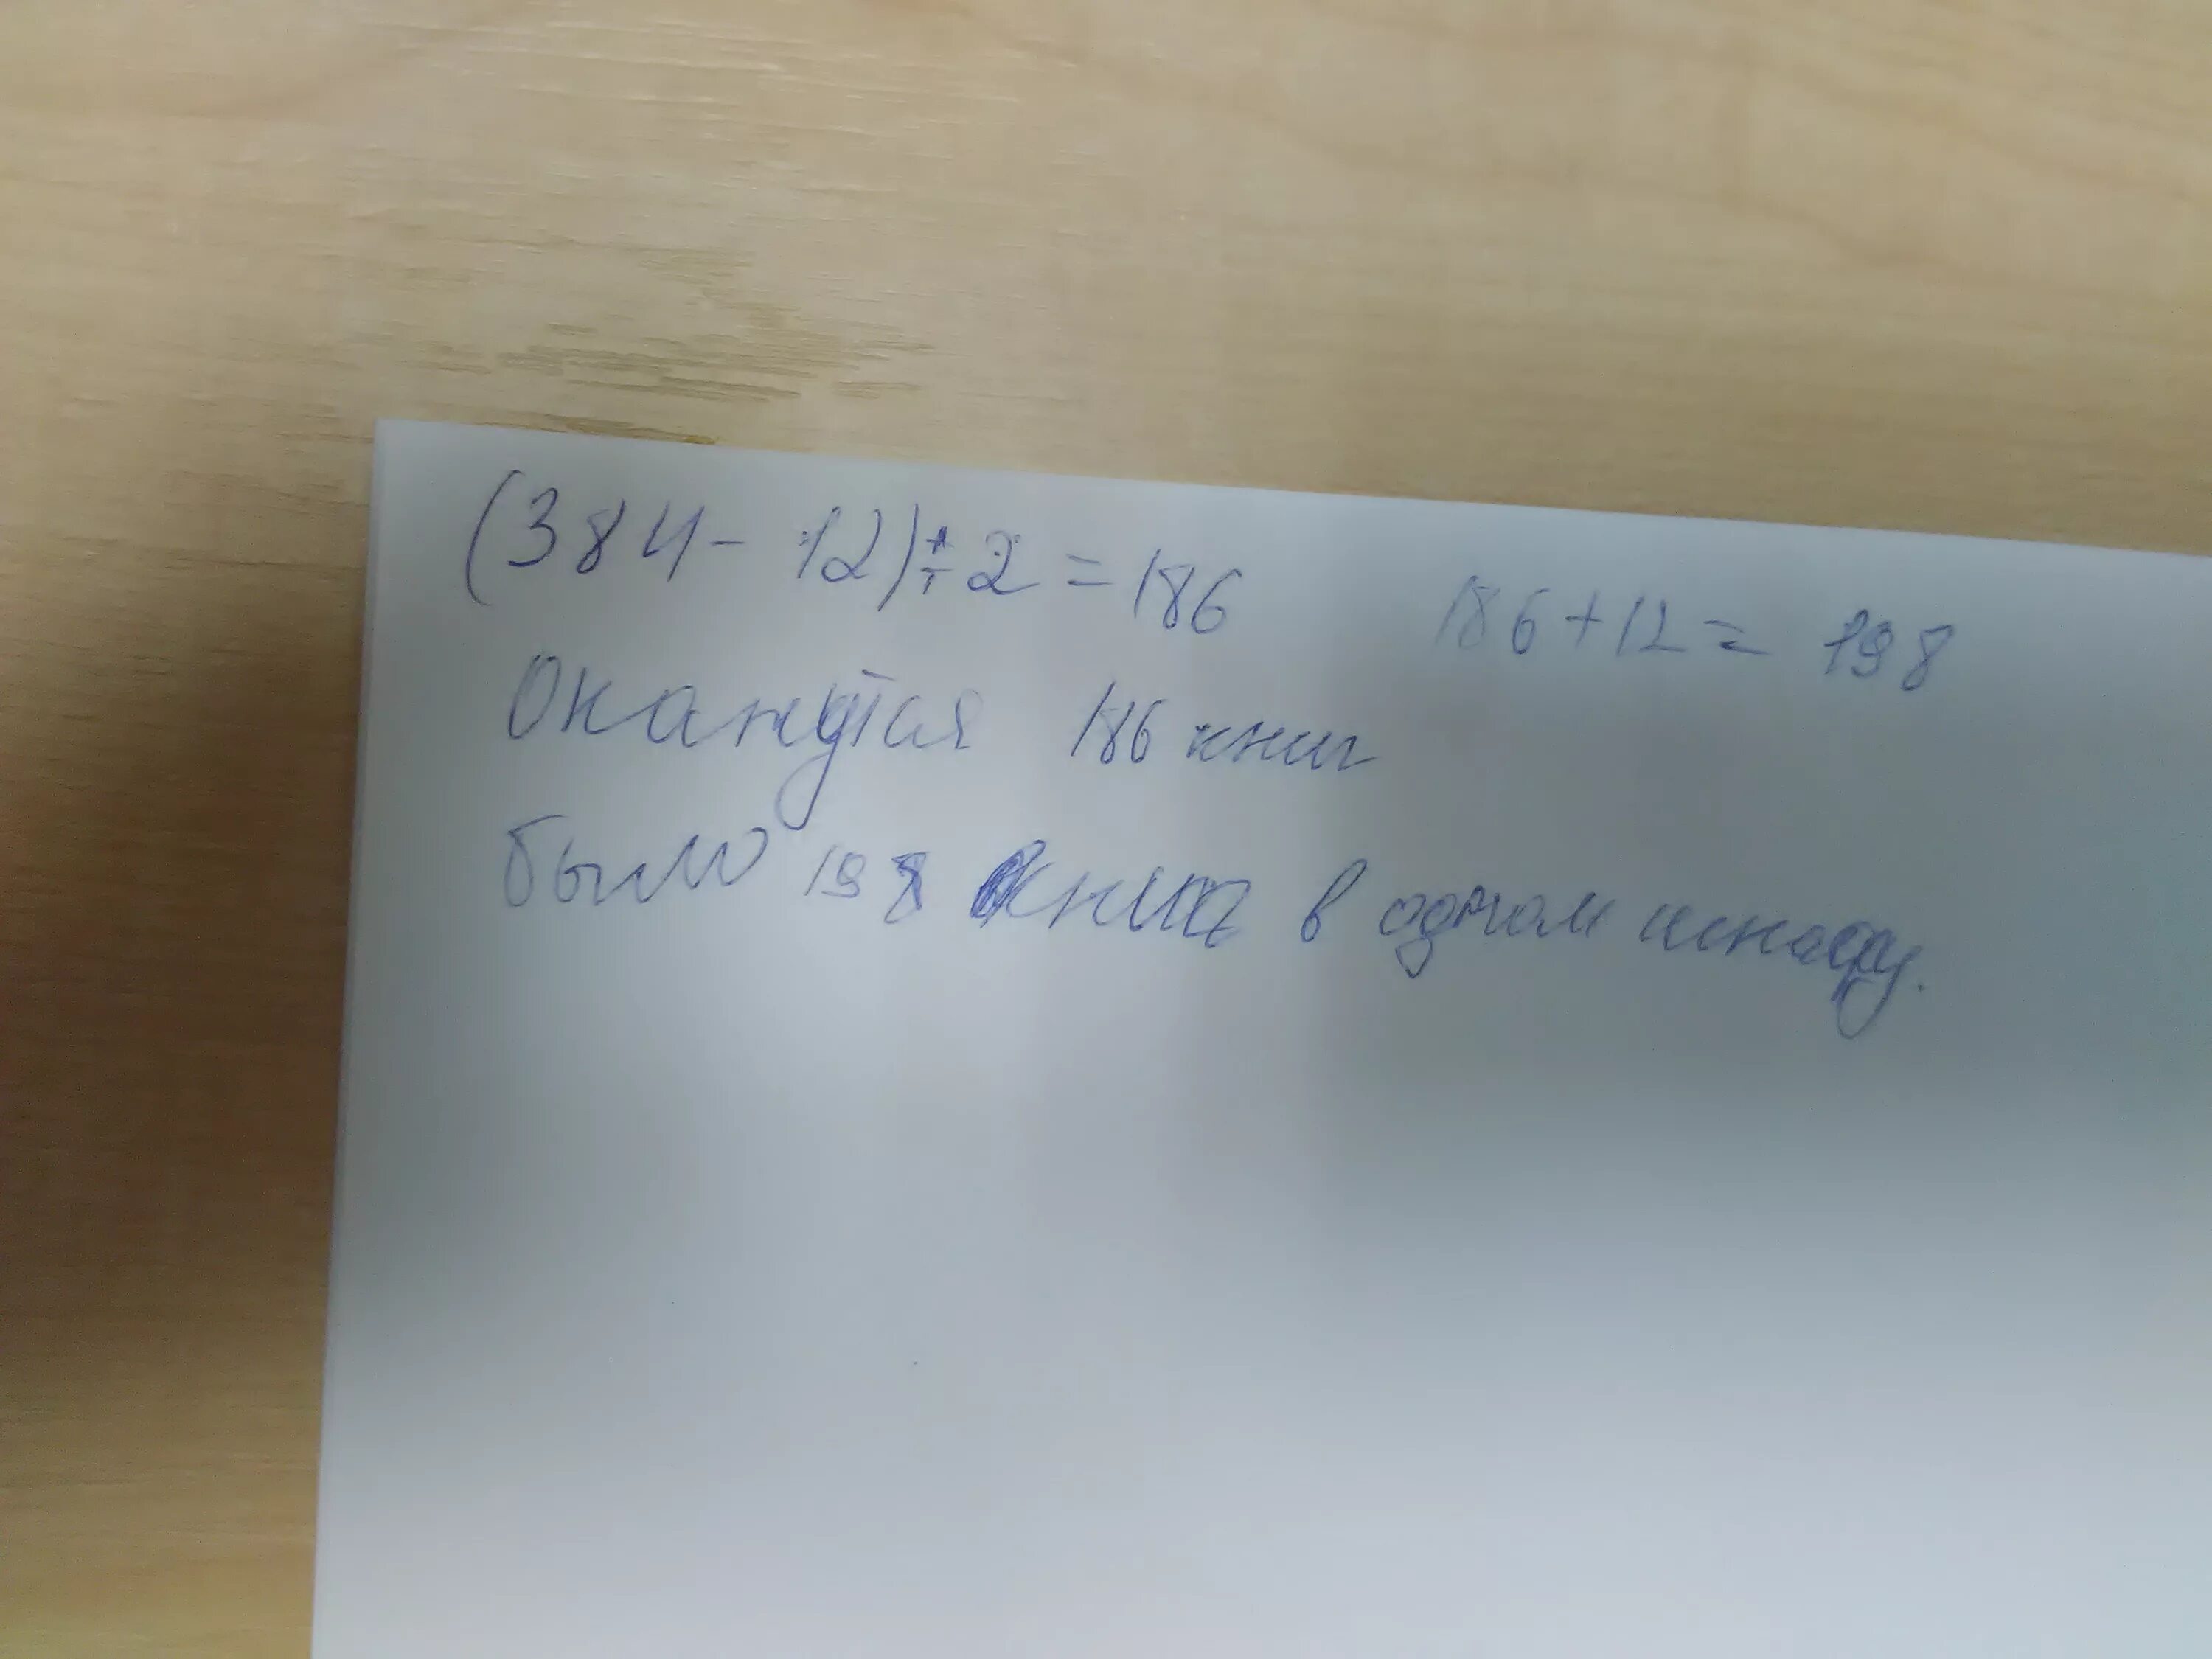 (384 - 12) ÷ 2 = 186 186 + 12 = 198
Окажутся 186 книг
было 198 книга в одном шкафу.